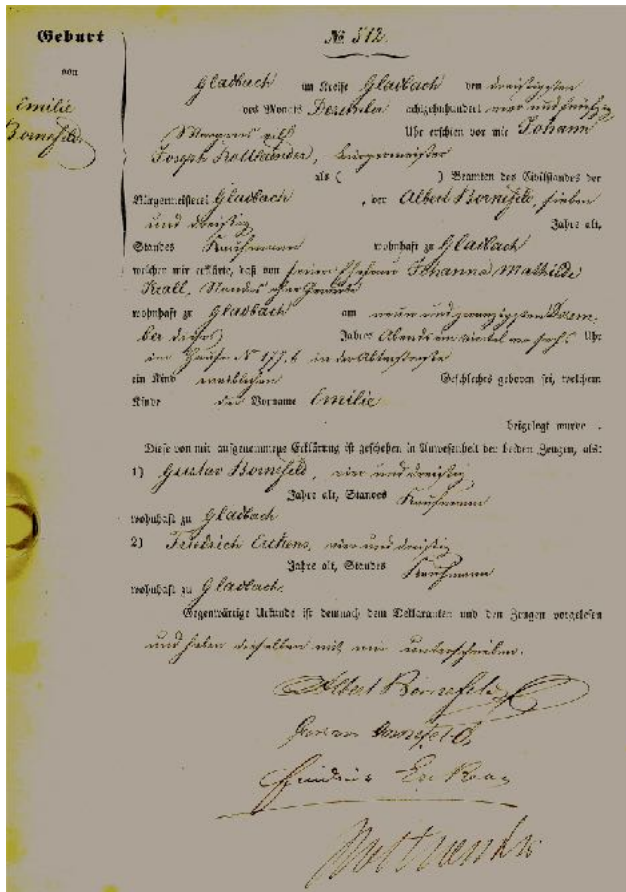 Geburt
№ 512.
von
Emilie
Bornefeld
Gladbach im Kreise Gladbach den dreißigsten
des Monats Dezember achtzehnhundert vier und fünfzig
Morgens elf Uhr erschien vor mir Johann
Joseph Rottländer, Bürgermeister
als ( ) Beamten des Civilstandes der
Bürgermeisterei Gladbach, der Albert Bornefeld, sieben
und dreißig Jahre alt,
Standes Kaufmann wohnhaft zu Gladbach
welcher mir erklärte, daß von seiner Ehefrau Johanna Mathilde
Krall, Standes ohne Gewerbe
wohnhaft zu Gladbach am neun und zwanzigsten Dezem-
ber dieses Jahres Abends ein Viertel vor sechs Uhr
im Hause N 177.b in der Abteistraße
ein Kind weiblichen Geschlechts geboren sei, welchem
Kinde der Vorname Emilie
beigelegt wurde.
Diese von mir aufgenommene Erklärung ist geschehen in Anwesenheit der beiden Zeugen, als:
1) Gustav Bornefeld, vier und dreißig
Jahre alt, Standes Kaufmann
wohnhaft zu Gladbach
2) Friedrich Erckens, vier und dreißig
Jahre alt, Standes Kaufmann
wohnhaft zu Gladbach.
Gegenwärtige Urkunde ist demnach dem Deklaranten und den Zeugen vorgelesen
und haben dieselben mit mir unterschrieben.
Albert Bornefeld
Gustav Bornefeld
Friedrich Erckens
Rottländer